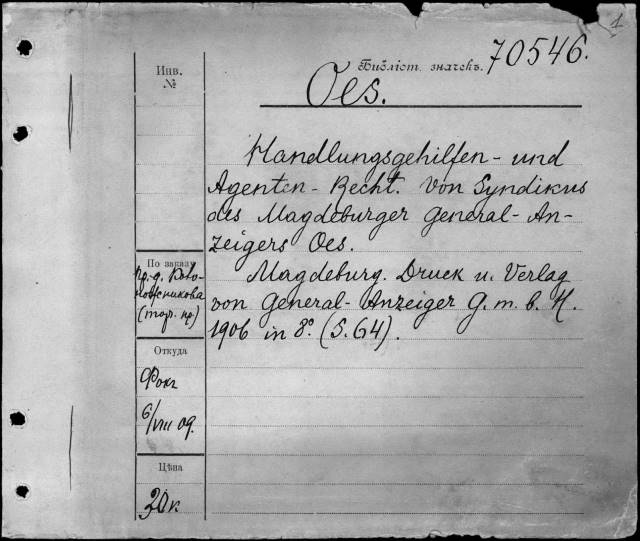 1
70546.
Инв.
№
Библіот. значекъ.
Oes.
Handlungsgehilfen- und
Agenten-Recht. Von Syndikus
des Magdeburger General-An-
zeigers Oes.
Magdeburg. Druck u. Verlag
von General-Anzeiger G. m. b. H.
1906 in 8° (S. 64).
По заказу
пр. д.
Откуда
Фокъ
6/VIII 09.
Цѣна
30 к